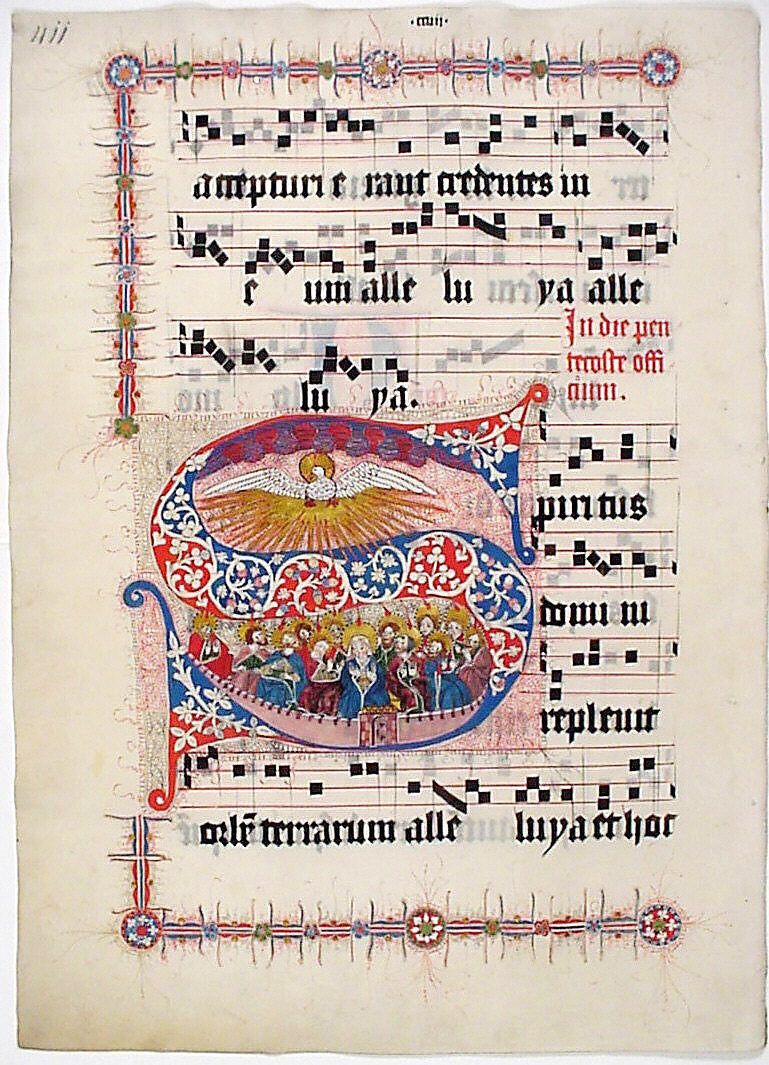 accepturi erant credentes in
e um alle lu ya alle
In die pen
tecoste offi
cium.
lu ya.
Spiritus
domini
repleuit
orbē terrarum alle luya et hoc